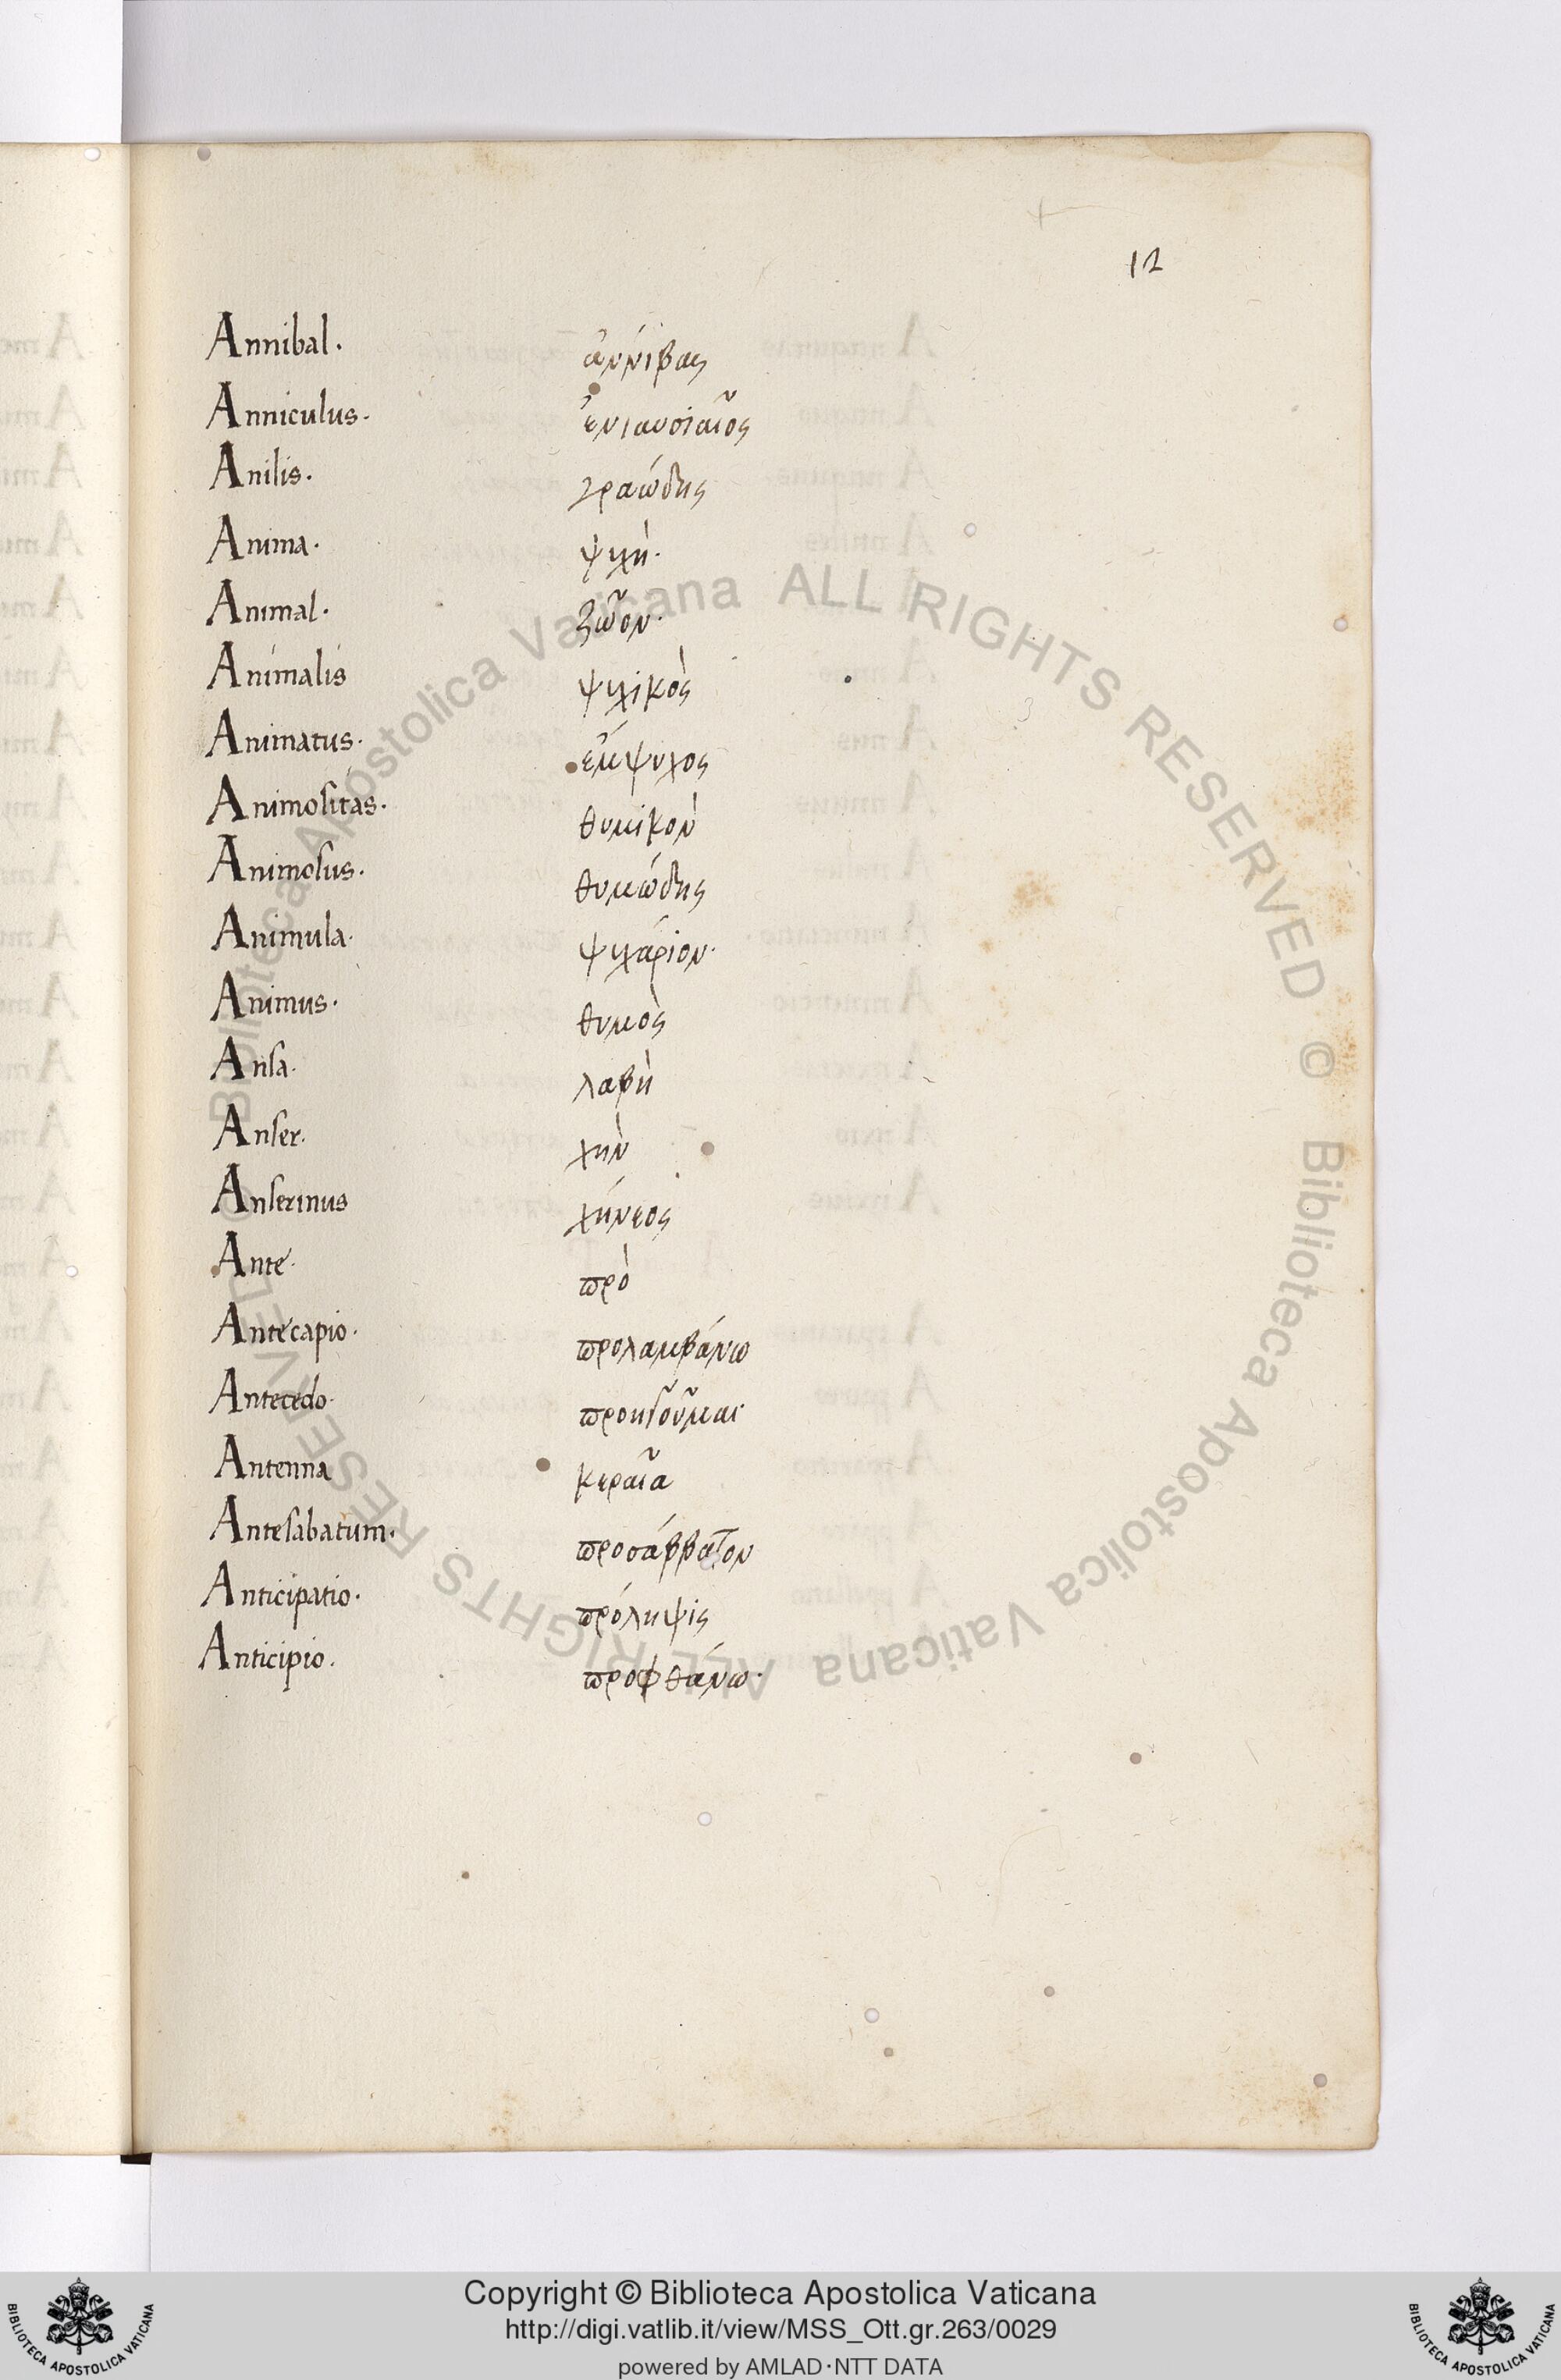 12
Annibal. ἀννίβας
Anniculus. ἐνιαυσιαῖος
Anilis. γραώδης
Anima. ψυχὴ.
Animal. ζῶον.
Animalis ψυχικὸς
Animatus. ἔμψυχος
Animositas. θυμικὸν
Animosus. θυμώδης
Animula. ψυχάριον.
Animus. θυμὸς
Ansa. λαβὴ
Anser. χὴν
Anserinus χήνεος
Ante. πρὸ
Antecapio. προλαμβάνω
Antecedo. προηγοῦμαι
Antenna κεραῖα
Antesabatum. προσάββατον
Anticipatio. πρόληψις
Anticipio. προφθάνω.
Biblioteca Apostolica Vaticana ALL RIGHTS RESERVED ©
Biblioteca Apostolica Vaticana ALL RIGHTS RESERVED ©
Copyright © Biblioteca Apostolica Vaticana
http://digi.vatlib.it/view/MSS_Ott.gr.263/0029
powered by AMLAD·NTT DATA
BIBLIOTECA APOSTOLICA VATICANA
BIBLIOTECA APOSTOLICA VATICANA